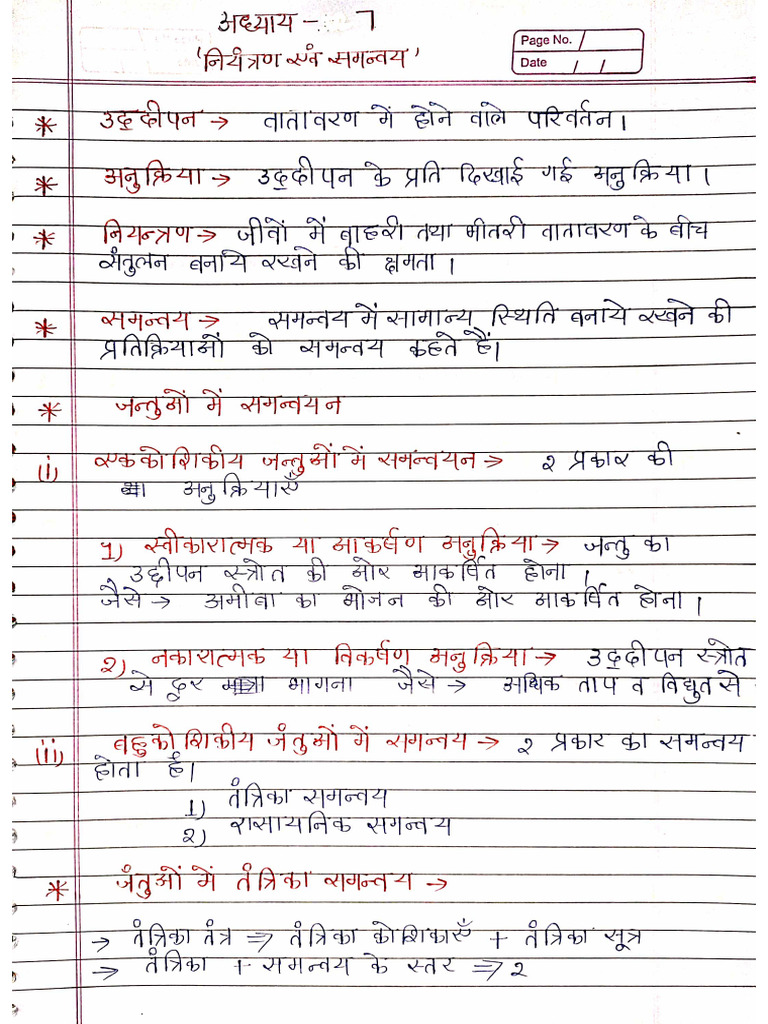 अध्याय - 7
'नियंत्रण एवं समन्वय'
Page No.
Date / /
* उद्दीपन → वातावरण में होने वाले परिवर्तन।
* अनुक्रिया → उद्दीपन के प्रति दिखाई गई अनुक्रिया।
* नियन्त्रण → जीवों में बाहरी तथा भीतरी वातावरण के बीच
संतुलन बनाये रखने की क्षमता।
* समन्वय → समन्वय में सामान्य स्थिति बनाये रखने की
प्रतिक्रियाओं को समन्वय कहते हैं।
* जन्तुओं में समन्वयन
(i) एककोशिकीय जन्तुओं में समन्वयन → 2 प्रकार की
अनुक्रियाएँ
1) स्वीकारात्मक या आकर्षण अनुक्रिया → जन्तु का
उद्दीपन स्त्रोत की ओर आकर्षित होना।
जैसे → अमीबा का भोजन की ओर आकर्षित होना।
2) नकारात्मक या विकर्षण अनुक्रिया → उद्दीपन स्त्रोत
से दूर भागना जैसे → अधिक ताप व विद्युत से
(ii) बहुकोशिकीय जंतुओं में समन्वय → 2 प्रकार का समन्वय
होता है।
1) तंत्रिका समन्वय
2) रासायनिक समन्वय
* जंतुओं में तंत्रिका समन्वय →
→ तंत्रिका तंत्र ⇒ तंत्रिका कोशिकाएँ + तंत्रिका सूत्र
→ तंत्रिका + समन्वय के स्तर ⇒ 2